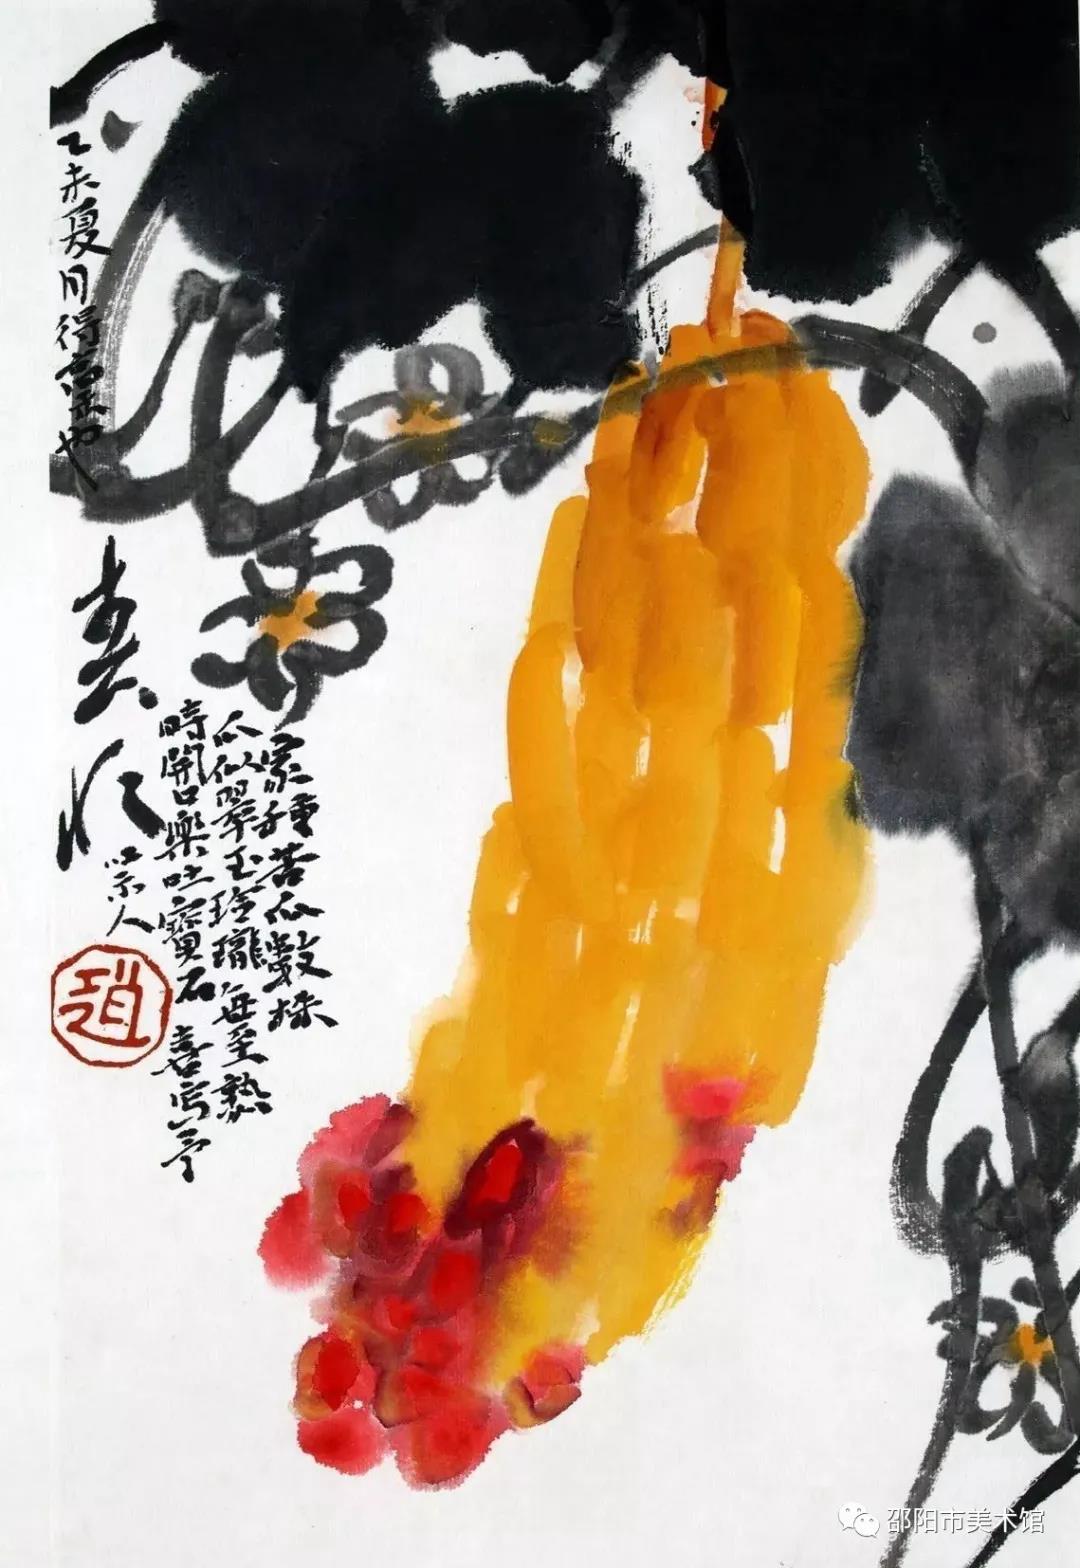 家種苦瓜數株
瓜似翠玉玲瓏每至熟
時開口樂吐寶石 喜寫
乙未夏月得
也
人
趙
邵阳市美术馆